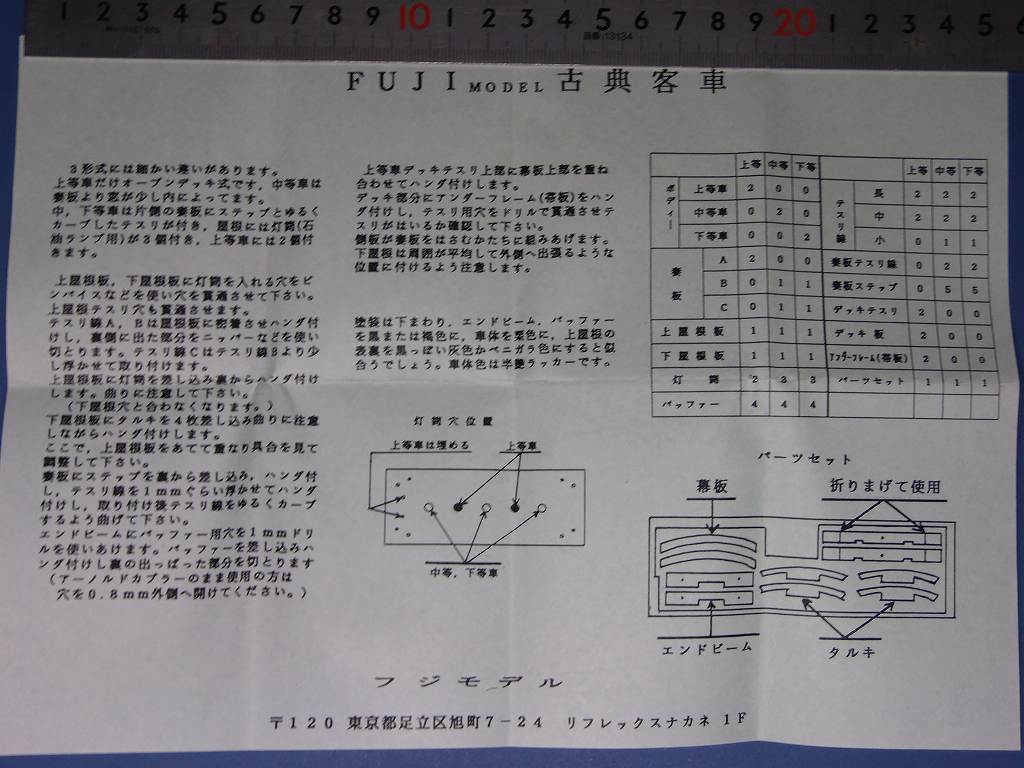 1 2 3 4 5 6 7 8 9 10 1 2 3 4 5 6 7 8 9 20 1 2 3 4 5 6
品番:13134
FUJI MODEL 古典客車
3形式には細かい違いがあります。
上等車だけオープンデッキ式です,中等車は
妻板より窓が少し内によってます。
中,下等車は片側の妻板にステップとゆるく
カーブしたテスリが付き,屋根には灯筒(石
油ランプ用)が3個付き,上等車には2個付
きます。
上屋根板,下屋根板に灯筒を入れる穴をピ
ンバイスなどを使い穴を貫通させて下さい。
上屋根テスリ穴も貫通させます。
テスリ線A,Bは屋根板に密着させハンダ付
けし,裏側に出た部分をニッパーなどを使い
切とります。テスリ線CはテスリBより少
し浮かせて取り付けます。
上屋根板に灯筒を差し込み裏からハンダ付け
します。曲りに注意して下さい。
(下屋根穴と合わなくなります。)
下屋根板にタルキを4枚差し込み曲りに注意
しながらハンダ付けします。
ここで,上屋根板をあてて重なり具合を見て
調整して下さい。
妻板にステップを裏から差し込み,ハンダ付
し,テスリ線を1mmぐらい浮かせてハンダ
付けし,取り付け後テスリ線をゆるくカーブ
するよう曲げて下さい。
エンドビームにバッファー用穴を1mmドリ
ルを使いあけます。バッファーを差し込みハ
ンダ付けし裏の出っぱった部分を切とります
(アーノルドカプラーのまま使用の方は
穴を0.8mm外側へ開けてください。)
上等車デッキテスリ上部に幕板上部を重ね
合わせてハンダ付けします。
デッキ部分にアンダーフレーム(帯板)をハン
ダ付けし,テスリ用穴をドリルで貫通させテ
スリがはいるか確認して下さい。
側板が妻板をはさむかたちに組みあげます。
下屋根は周囲が平均して外側へ出張るような
位置に付けるよう注意します。
塗装は下まわり,エンドビーム,バッファー
を黒または褐色に,車体を栗色に,上屋根の
表裏を黒っぽい灰色かベニガラ色にすると似
合うでしょう。車体色は半艶ラッカーです。
灯筒穴位置
上等車は埋める 上等車
中等,下等車
上等 中等 下等 上等 中等 下等
ボディー 上等車 2 0 0 テスリ線 長 2 2 2
中等車 0 2 0 中 2 2 2
下等車 0 0 2 小 0 1 1
妻板 A 2 0 0 妻板テスリ線 0 2 2
B 0 1 1 妻板ステップ 0 5 5
C 0 1 1 デッキテスリ 2 0 0
上屋根板 1 1 1 デッキ板 2 0 0
下屋根板 1 1 1 アンダーフレーム(帯板) 2 0 0
灯筒 2 3 3 パーツセット 1 1 1
バッファー 4 4 4
パーツセット
幕板 折りまげて使用
エンドビーム タルキ
フジモデル
〒120 東京都足立区旭町7-24 リフレックスナカネ 1F